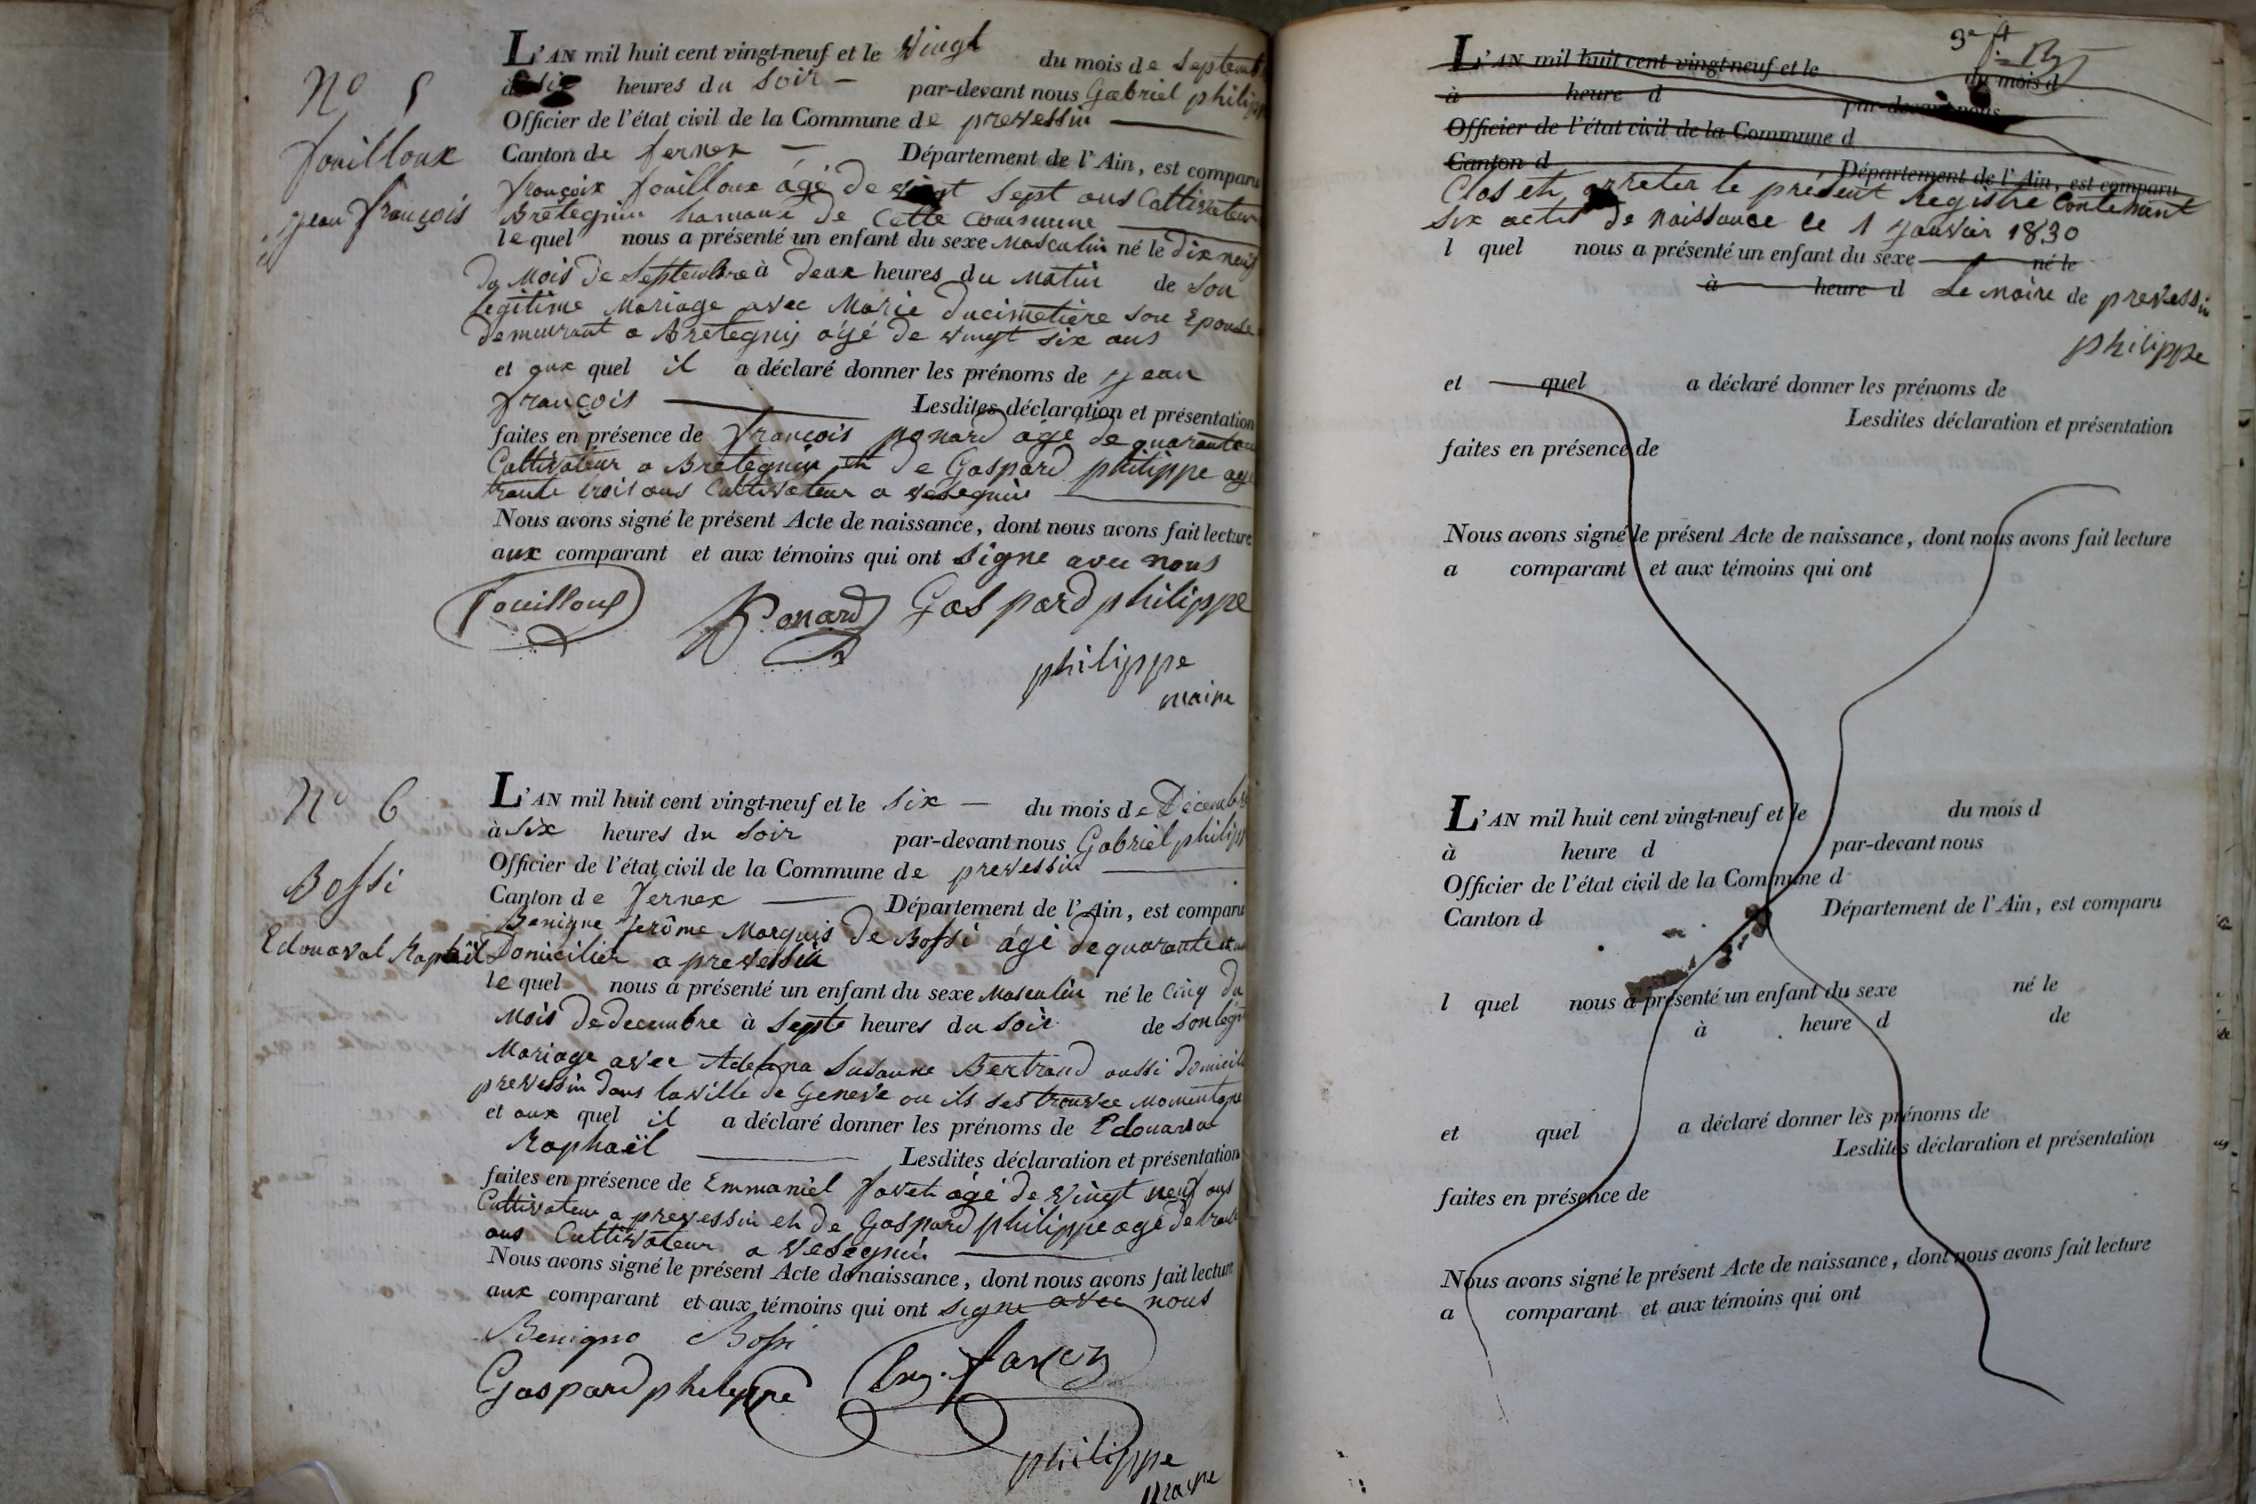 N° 5
fouilloux
jean françois
L'AN mil huit cent vingt-neuf et le vingt du mois de septemb
à six heures du soir par-devant nous Gabriel philipp
Officier de l'état civil de la Commune de prevessin
Canton de fernex Département de l'Ain, est comparu
françoix fouilloux agé de vingt sept ans Cultivateur
Bretegnin hamaux de Cette Commune
le quel nous a présenté un enfant du sexe Masculin né le dix neuf
du Mois de Septembre à deux heures du Matin de son
legitime Mariage avec Marie ducimetiere son Epouse
demeurant a Bretegnij agé de vingt six ans
et aux quel il a déclaré donner les prénoms de jean
françois Lesdites déclaration et présentation
faites en présence de françois ponard agé de quarante
Cultivateur a Bretegnin et de Gaspard philippe agé
trante trois ans Cultivateur a vesegnin
Nous avons signé le présent Acte de naissance, dont nous avons fait lecture
aux comparant et aux témoins qui ont signe avec nous
fouilloux Ponard Gaspard philippe
philippe
maire
N° 6
Bossi
Edouaral Raphaël
L'AN mil huit cent vingt-neuf et le six du mois de Decemb
à six heures du soir par-devant nous Gabriel philipp
Officier de l'état civil de la Commune de prevessin
Canton de fernex Département de l'Ain, est comparu
Benigne Jerôme Marquis de Bossi agé de quarante
Domicilier a prevessin
le quel nous a présenté un enfant du sexe Masculin né le Cinq du
Mois de decembre à Septe heures du Soir de son legi
Mariage avec Susanne Bertrand aussi domicil
prevessin dans la ville de Geneve ou ils ses trouvee Momentane
et aux quel il a déclaré donner les prénoms de Edouard
Raphaël Lesdites déclaration et présentation
faites en présence de Emmaniel favet agé de vingt neuf ans
Cultivateur a prevessin et de Gaspard philippe agé de trante
ans Cultivateur a vesegnin
Nous avons signé le présent Acte de naissance, dont nous avons fait lecture
aux comparant et aux témoins qui ont signe avec nous
Benigno Bossi
Gaspard philippe
philippe
maire
L'AN mil huit cent vingt-neuf et le du mois d
à heure d par-devant nous
Officier de l'état civil de la Commune d
Canton d Département de l'Ain, est comparu
Clos et arreter le présent Registre Contenant
six actes de Naissance le 1 janvier 1830
l quel nous a présenté un enfant du sexe né le
à heure d Le maire de prevessin
philippe
et quel a déclaré donner les prénoms de
Lesdites déclaration et présentation
faites en présence de
Nous avons signé le présent Acte de naissance, dont nous avons fait lecture
a comparant et aux témoins qui ont
L'AN mil huit cent vingt-neuf et le du mois d
à heure d par-devant nous
Officier de l'état civil de la Commune d
Canton d Département de l'Ain, est comparu
l quel nous a présenté un enfant du sexe né le
à heure d de
et quel a déclaré donner les prénoms de
Lesdites déclaration et présentation
faites en présence de
Nous avons signé le présent Acte de naissance, dont nous avons fait lecture
a comparant et aux témoins qui ont